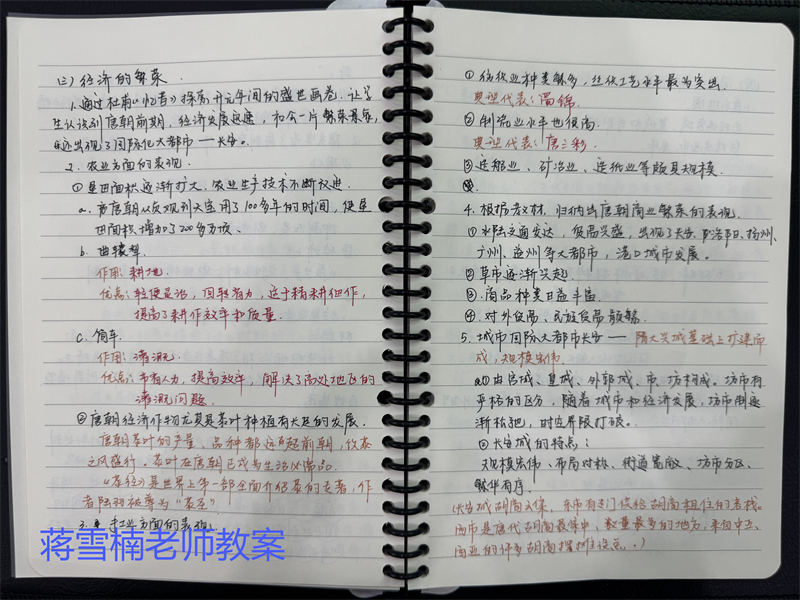 (三) 经济的繁荣.
1. 通过杜甫《忆昔》探究开元年间的盛世画卷. 让学
生认识到唐朝前期, 经济发展迅速, 和今一片繁荣景象,
还出现了国际化大都市——长安。
2. 农业方面的表现.
①垦田面积逐渐扩大, 农业生产技术不断改进.
a. 唐朝从贞观到天宝用了100多年的时间, 使垦
田面积增加了200多万顷.
b. 曲辕犁
作用: 耕地.
优点: 轻便灵活, 回转省力, 适于精耕细作,
提高了耕作效率和质量.
c. 筒车.
作用: 灌溉.
优点: 节省人力, 提高效率, 解决了高处地区的
灌溉问题.
②唐朝经济作物尤其是茶叶种植有大的发展.
唐朝茶叶的产量, 品种都远超前朝, 饮茶
之风盛行. 茶叶在唐朝已成为生活必需品.
《茶经》是世界上第一部全面介绍茶的专著, 作
者陆羽被尊为“茶圣”
3. 手工业方面的表现:
蒋雪楠老师教案
①纺织业种类繁多, 丝织工艺水平最为突出.
典型代表: 蜀锦.
②制瓷业水平也很高.
典型代表: 唐三彩.
③造船业、矿冶业、造纸业等颇具规模.
4. 根据教材, 归纳出唐朝商业繁荣的表现.
①水陆交通发达, 贸易兴盛, 出现了长安、洛阳、扬州、
广州、益州等大都市, 港口城市发展.
②草市逐渐兴起
③商品种类日益丰富
④对外贸易、民族贸易频繁.
5. 城市国际大都市长安——隋大兴城基础上扩建而
成, 规模宏伟
①由宫城、皇城、外郭城、市、坊构成. 坊市有
严格的区分, 随着城市和经济发展, 坊市制逐
渐松弛, 时空界限打破.
②长安城的特点:
规模宏伟、布局对称、街道宽敞、坊市分区、
井然有序.
(长安城胡商云集, 东市有专门供给胡商租住的客栈.
西市是唐代胡商最集中, 数量最多的地方, 来自中亚、
西亚的许多胡商摆摊设点.)